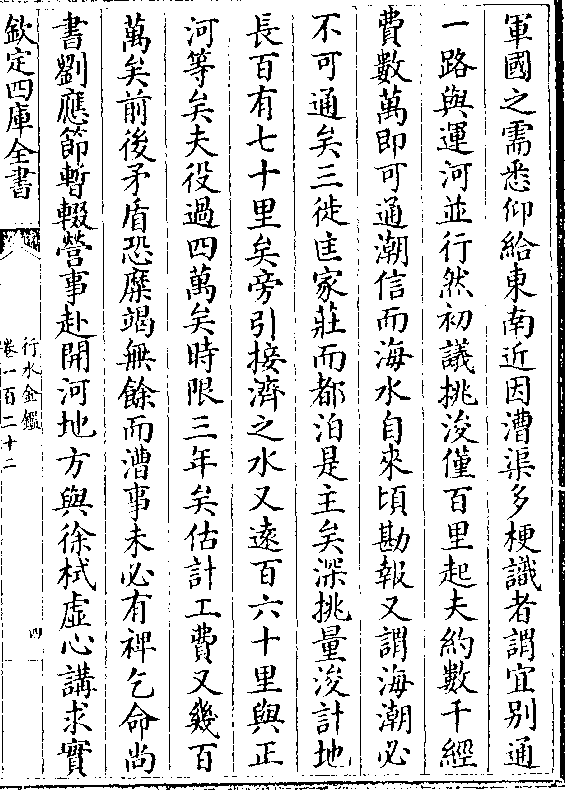 軍國之需悉仰給東南近因漕渠多梗識者謂宜别通
一路與運河並行然初議挑浚僅百里起夫約數千經
費數萬即可通潮信而海水自來頃勘報又謂海潮必
不可通矣三徙匡家莊而都泊是主矣深挑量浚計地
長百有七十里矣旁引接濟之水又逺百六十里與正
河等矣夫役過四萬矣時限三年矣估計工費又幾百
萬矣前後矛盾恐糜竭無餘而漕事未必有裨乞命尚
書劉應節暫輟營事赴開河地方與徐栻虚心講求實
欽定四庫全書
行水金鑑
卷一百二十二
四